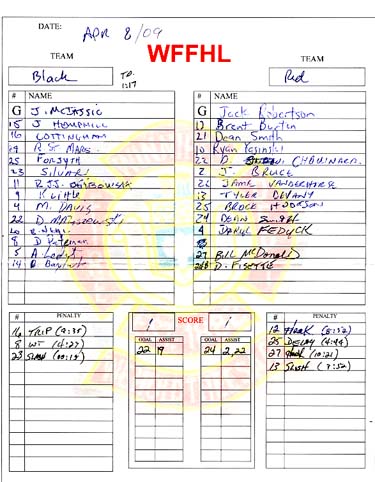 DATE: APR 8/09
WFFHL
TEAM
Black
T.O. 1:17
# NAME
G J. MCTASSIC
15 J HEMPHILL
16 COTTINGHAM
19 R ST MARS.
25 FORSYTH
23 Silvari
11 R
9 K Little
4 M. DAVIS
22 D MATUSZEWSKI
8 D Bateman
5
14
TEAM
Red
# NAME
G Jack Robertson
17 Brent Burtin
21 Dean Smith
10 Ryan Yesinski
22 D. CHOUINARD.
2 J. BRUCE
JAMIE VANDERHORK
13 TYLER DEVANY
25 BROCK HODGSON
24 DEAN
4 DARYL FEDYCK
27 BILL McDonald
D. FISETTE
# PENALTY
16 TRIP (9:35)
8 WT (4:27)
23 SLASH (00:13)
1 SCORE 1
GOAL ASSIST
22 19
GOAL ASSIST
24 2,22
# PENALTY
12 Hook (8:52)
25 DELAY (4:44)
27 Hook (10:21)
13 SLASH (7:52)